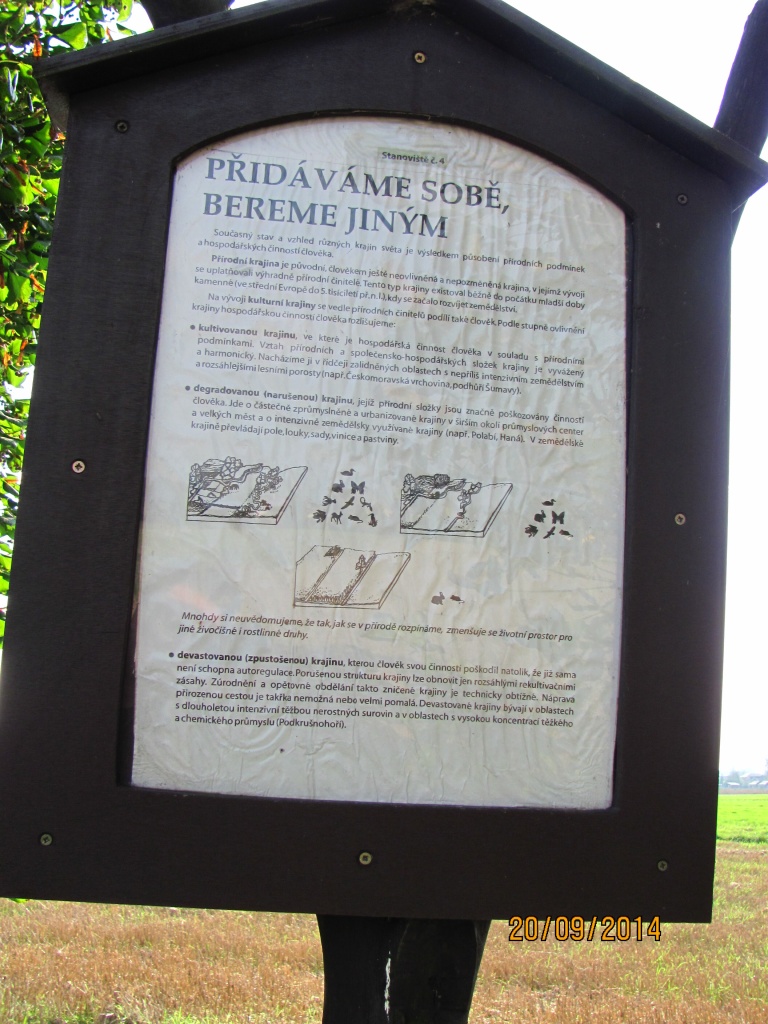 Stanoviště č. 4
PŘIDÁVÁME SOBĚ,
BEREME JINÝM
Současný stav a vzhled různých krajin světa je výsledkem působení přírodních podmínek
a hospodářských činností člověka.
Přírodní krajina je původní, člověkem ještě neovlivněná a nepozměněná krajina, v jejímž vývoji
se uplatňovali výhradně přírodní činitelé. Tento typ krajiny existoval běžně do počátku mladší doby
kamenné (ve střední Evropě do 5. tisíciletí př. n. l.), kdy se začalo rozvíjet zemědělství.
Na vývoji kulturní krajiny se vedle přírodních činitelů podílí také člověk. Podle stupně ovlivnění
krajiny hospodářskou činností člověka rozlišujeme:
• kultivovanou krajinu, ve které je hospodářská činnost člověka v souladu s přírodními
podmínkami. Vztah přírodních a společensko-hospodářských složek krajiny je vyvážený
a harmonický. Nacházíme ji v řidčeji zalidněných oblastech s nepříliš intenzivním zemědělstvím
a rozsáhlejšími lesními porosty (např. Českomoravská vrchovina, podhůří Šumavy).
• degradovanou (narušenou) krajinu, jejíž přírodní složky jsou značně poškozovány činností
člověka. Jde o částečně zprůmyslněné a urbanizované krajiny v širším okolí průmyslových center
a velkých měst a o intenzivně zemědělsky využívané krajiny (např. Polabí, Haná). V zemědělské
krajině převládají pole, louky, sady, vinice a pastviny.
Mnohdy si neuvědomujeme, že tak, jak se v přírodě rozpínáme, zmenšuje se životní prostor pro
jiné živočišné i rostlinné druhy.
• devastovanou (zpustošenou) krajinu, kterou člověk svou činností poškodil natolik, že již sama
není schopna autoregulace. Porušenou strukturu krajiny lze obnovit jen rozsáhlými rekultivačními
zásahy. Zúrodnění a opětovné obdělání takto zničené krajiny je technicky obtížné. Náprava
přirozenou cestou je takřka nemožná nebo velmi pomalá. Devastované krajiny bývají v oblastech
s dlouholetou intenzivní těžbou nerostných surovin a v oblastech s vysokou koncentrací těžkého
a chemického průmyslu (Podkrušnohoří).
20/09/2014